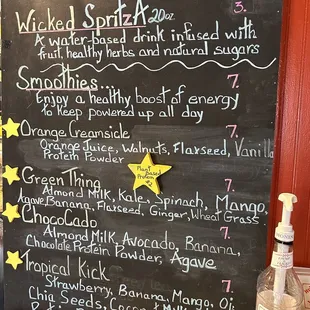 3.
Wicked SpritzA 20oz
A water-based drink infused with
fruit, healthy herbs and natural sugars
Smoothies... 7.
Enjoy a healthy boost of energy
to keep powered up all day
Orange Creamsicle 7.
Orange Juice, Walnuts, Flaxseed, Vanilla
Protein Powder
Plant
Based
Protein
Green Thing 7.
Almond Milk, Kale, Spinach, Mango,
Agave, Banana, Flaxseed, Ginger, Wheat Grass
ChocoCado 7.
Almond Milk, Avocado, Banana,
Chocolate Protein Powder, Agave
Tropical Kick 7.
Strawberry, Banana, Mango,
Chia Seeds,